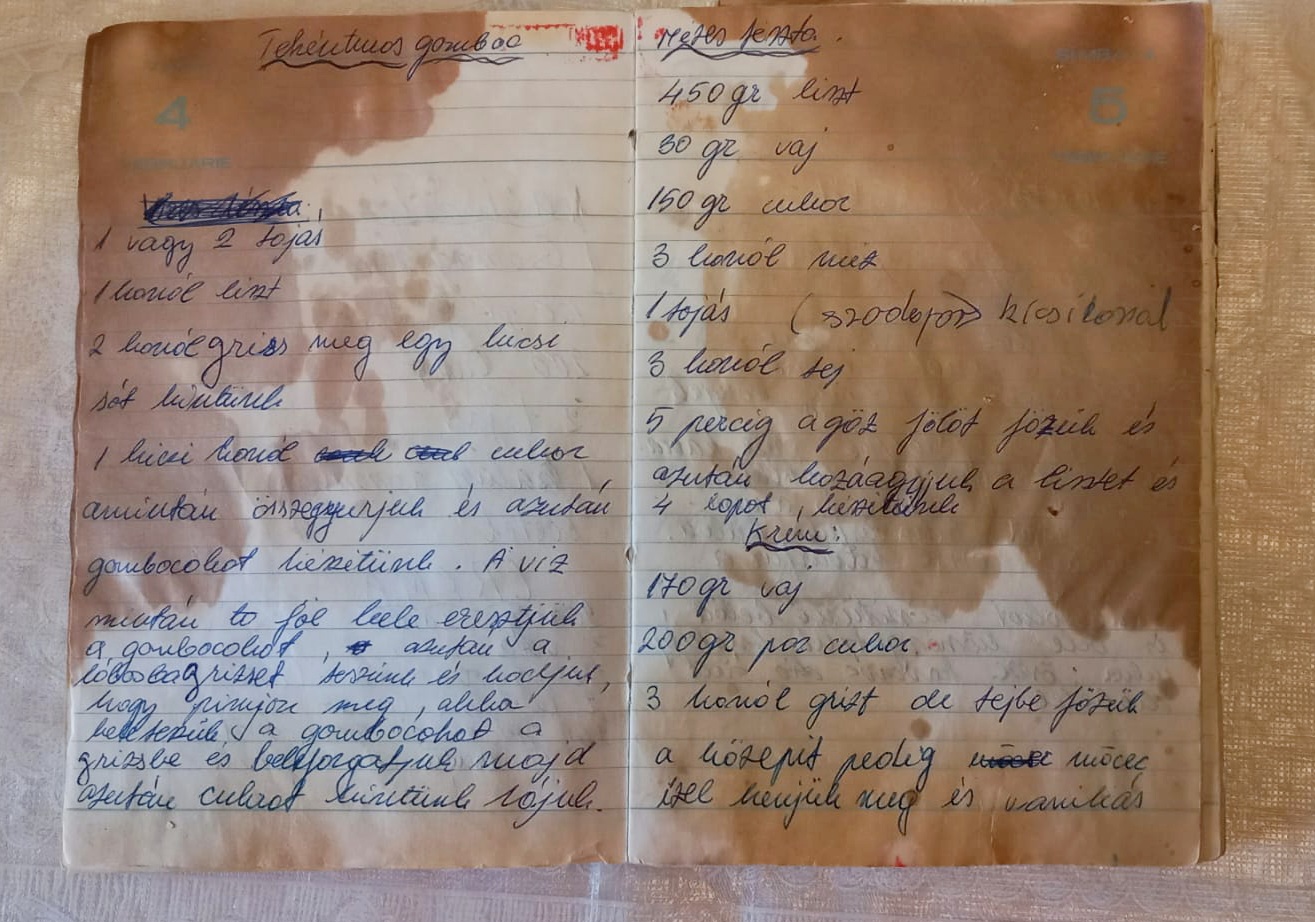 Tehéntúros gomboc
4
1 vagy 2 tojás
1 konól liszt
2 konól grizs meg egy kicsi
sót hintünk
1 kicsi konól cukor
amiután összegyurjuk és azután
gombocokot készitünk. A viz
miután fől bele eresztjük
a gombocokot, azután a
lábosba grizset teszünk és hadjuk,
hogy piruljon meg, abba
beletesszük a gombócokot a
grizsbe és beleforgatjuk majd
azután cukrot hintünk rájuk.
Mézes tészta.
5
450 gr liszt
30 gr vaj
150 gr cukor
3 konól méz
1 tojás (szodapor) kicsikonál
3 konól tej
5 percig a göz fölöt fözük és
azután hozáagyjuk a liszet és
4 lapot, készitünk
Krém:
170 gr vaj
200 gr por cukor.
3 konól grizt de tejbe fözük
a közepit pedig
izel kenjük meg és vaniliás